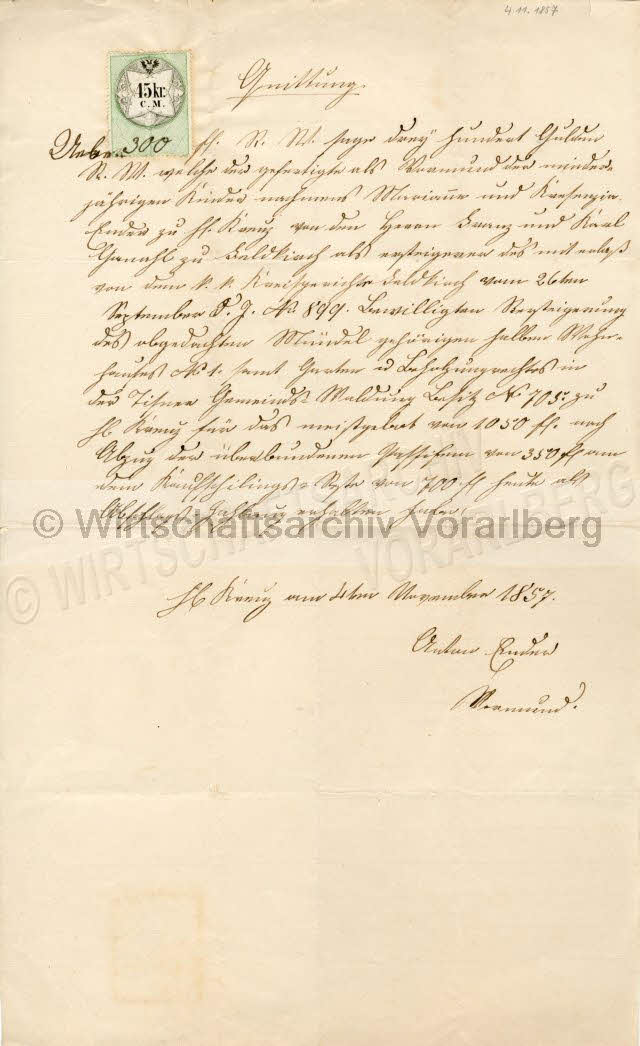 4.11.1857
Quittung.
15 kr.
C. M.
Ueber 300 fl. R. W. sage drey hundert Gulden
R. W. welche der gefertigte als Vormund der minder-
jährigen Kinder nahmens Mariann und Kresenzia
Ender zu hl. Kreuz von den Herrn Franz und Karl
Ganahl zu Feldkirch als ersteigerer des mit erlaß
von dem k. k. Kreisgerichte Feldkirch vom 26ten
September d. J. No 899. bewilligten Versteigerung
des obgedachten Mündel gehörigen halben Wohn-
hauses No 1. samt Garten u Beholzungrechtes in
der Tisner Gemeinds Waldung Besitz No 705. zu
hl. Kreuz für das meistgebot von 1050 fl. nach
Abzug der überbundenen von 350 fl am
dem Kaufschillings Reste von 700 fl heute als
Zahlung erhalten habe.
hl Kreuz am 4ten November 1857.
Anton Ender
Vormund.
© Wirtschaftsarchiv Vorarlberg
© WIRTSCHAFTSARCHIV
VORARLBERG